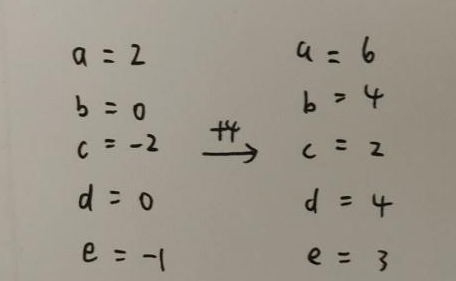 a = 2
b = 0
c = -2
d = 0
e = -1
+4
→
a = 6
b = 4
c = 2
d = 4
e = 3